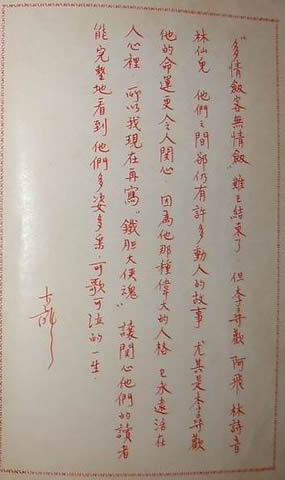 “多情劍客無情劍”雖已結束了．但李尋歡 阿飛 林詩音
林仙兒 他們之間卻仍有許多動人的故事 尤其是李尋歡
他的命運更令人関心．因為他那種偉大的人格 已永遠活在
人心裡 所以我現在再寫“鐵胆大俠魂” 讓関心他們的讀者
能完整地看到他們多姿多采．可歌可泣的一生．
古龍